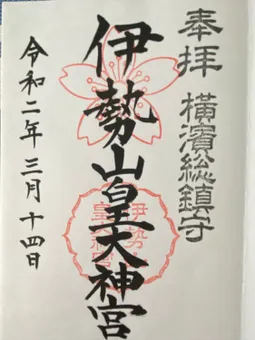 奉拝 横濱総鎮守
伊勢山皇大神宮
令和二年三月十四日